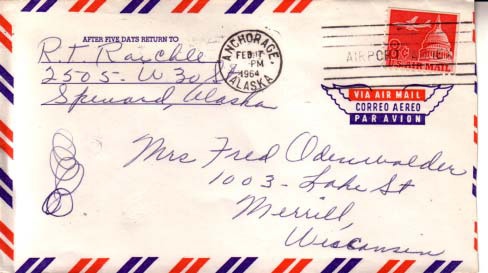 AFTER FIVE DAYS RETURN TO
R.T. Raichle
2505 - W 30 St
Spenard, Alaska
ANCHORAGE,
FEB
PM
1964
ALASKA
AIRPO
8¢
US AIR MAIL
VIA AIR MAIL
CORREO AEREO
PAR AVION
Mrs Fred Odenwalder
1003 - Lake St
Merrill,
Wisconsin